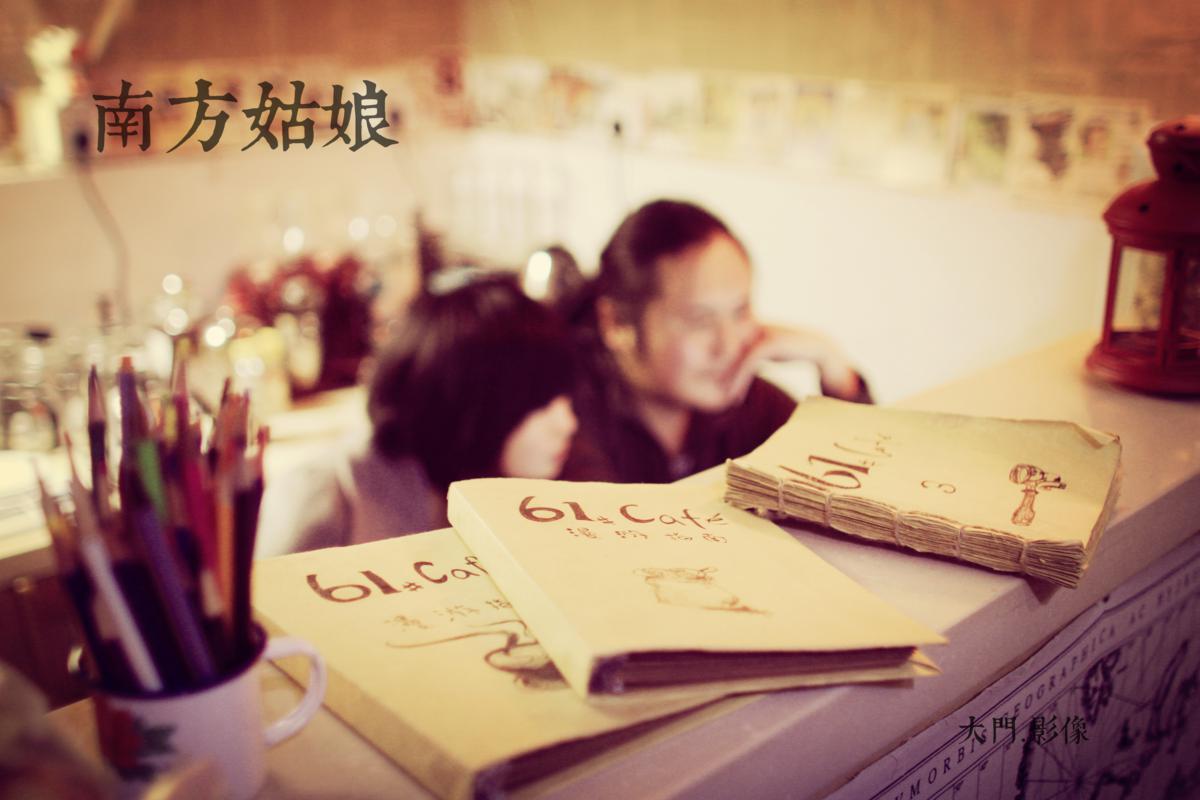 南方姑娘
61# Café
3
61# Café
漫游指南
61# Caf
漫游指
GEOGRAPHICA AC HYDRO
大門.影像